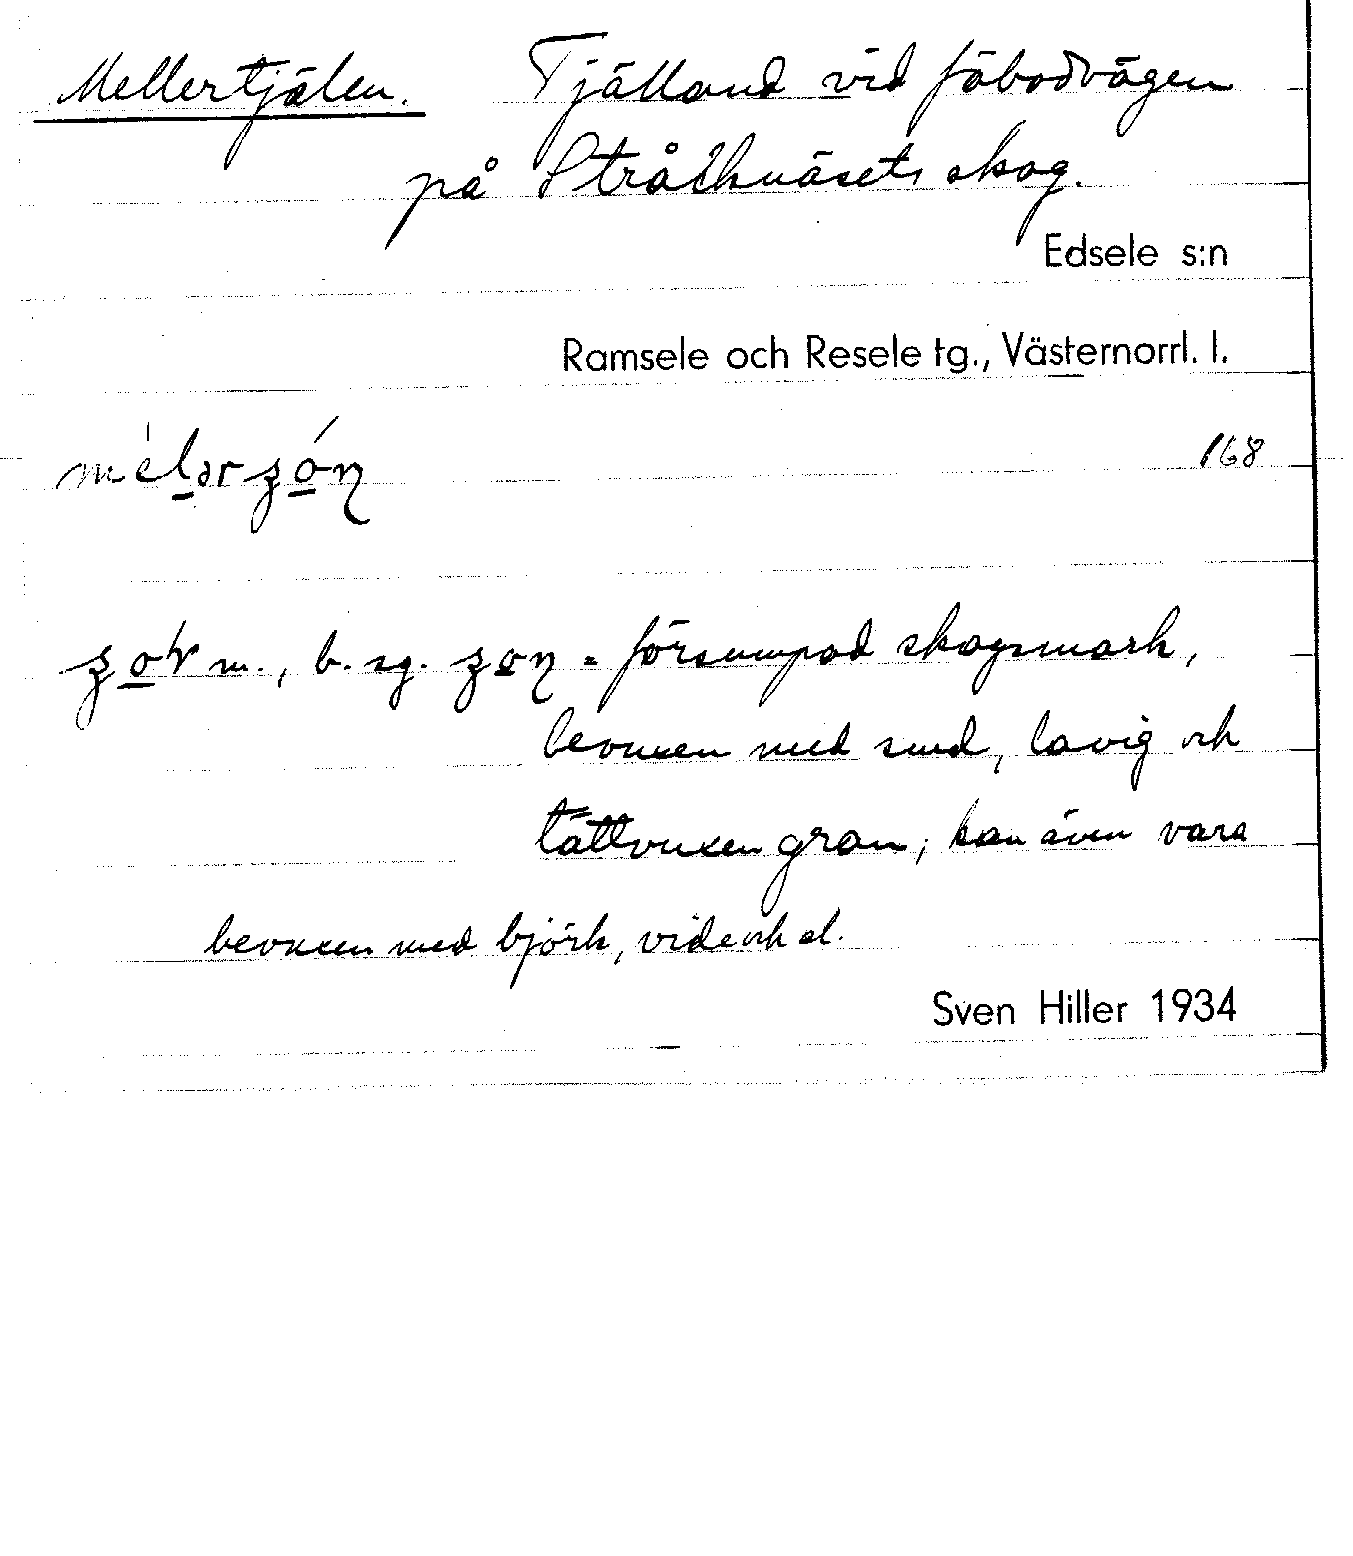 Mellertjälen. Tjälland vid fäbodvägen
på Stråkknäsets skog.
Edsele s:n
Ramsele och Resele tg., Västernorrl. l.
168
m., b. sg. = försumpad skogsmark,
bevuxen med små, lavig och
tättvuxen gran; kan även vara
bevuxen med björk, vide och al.
Sven Hiller 1934